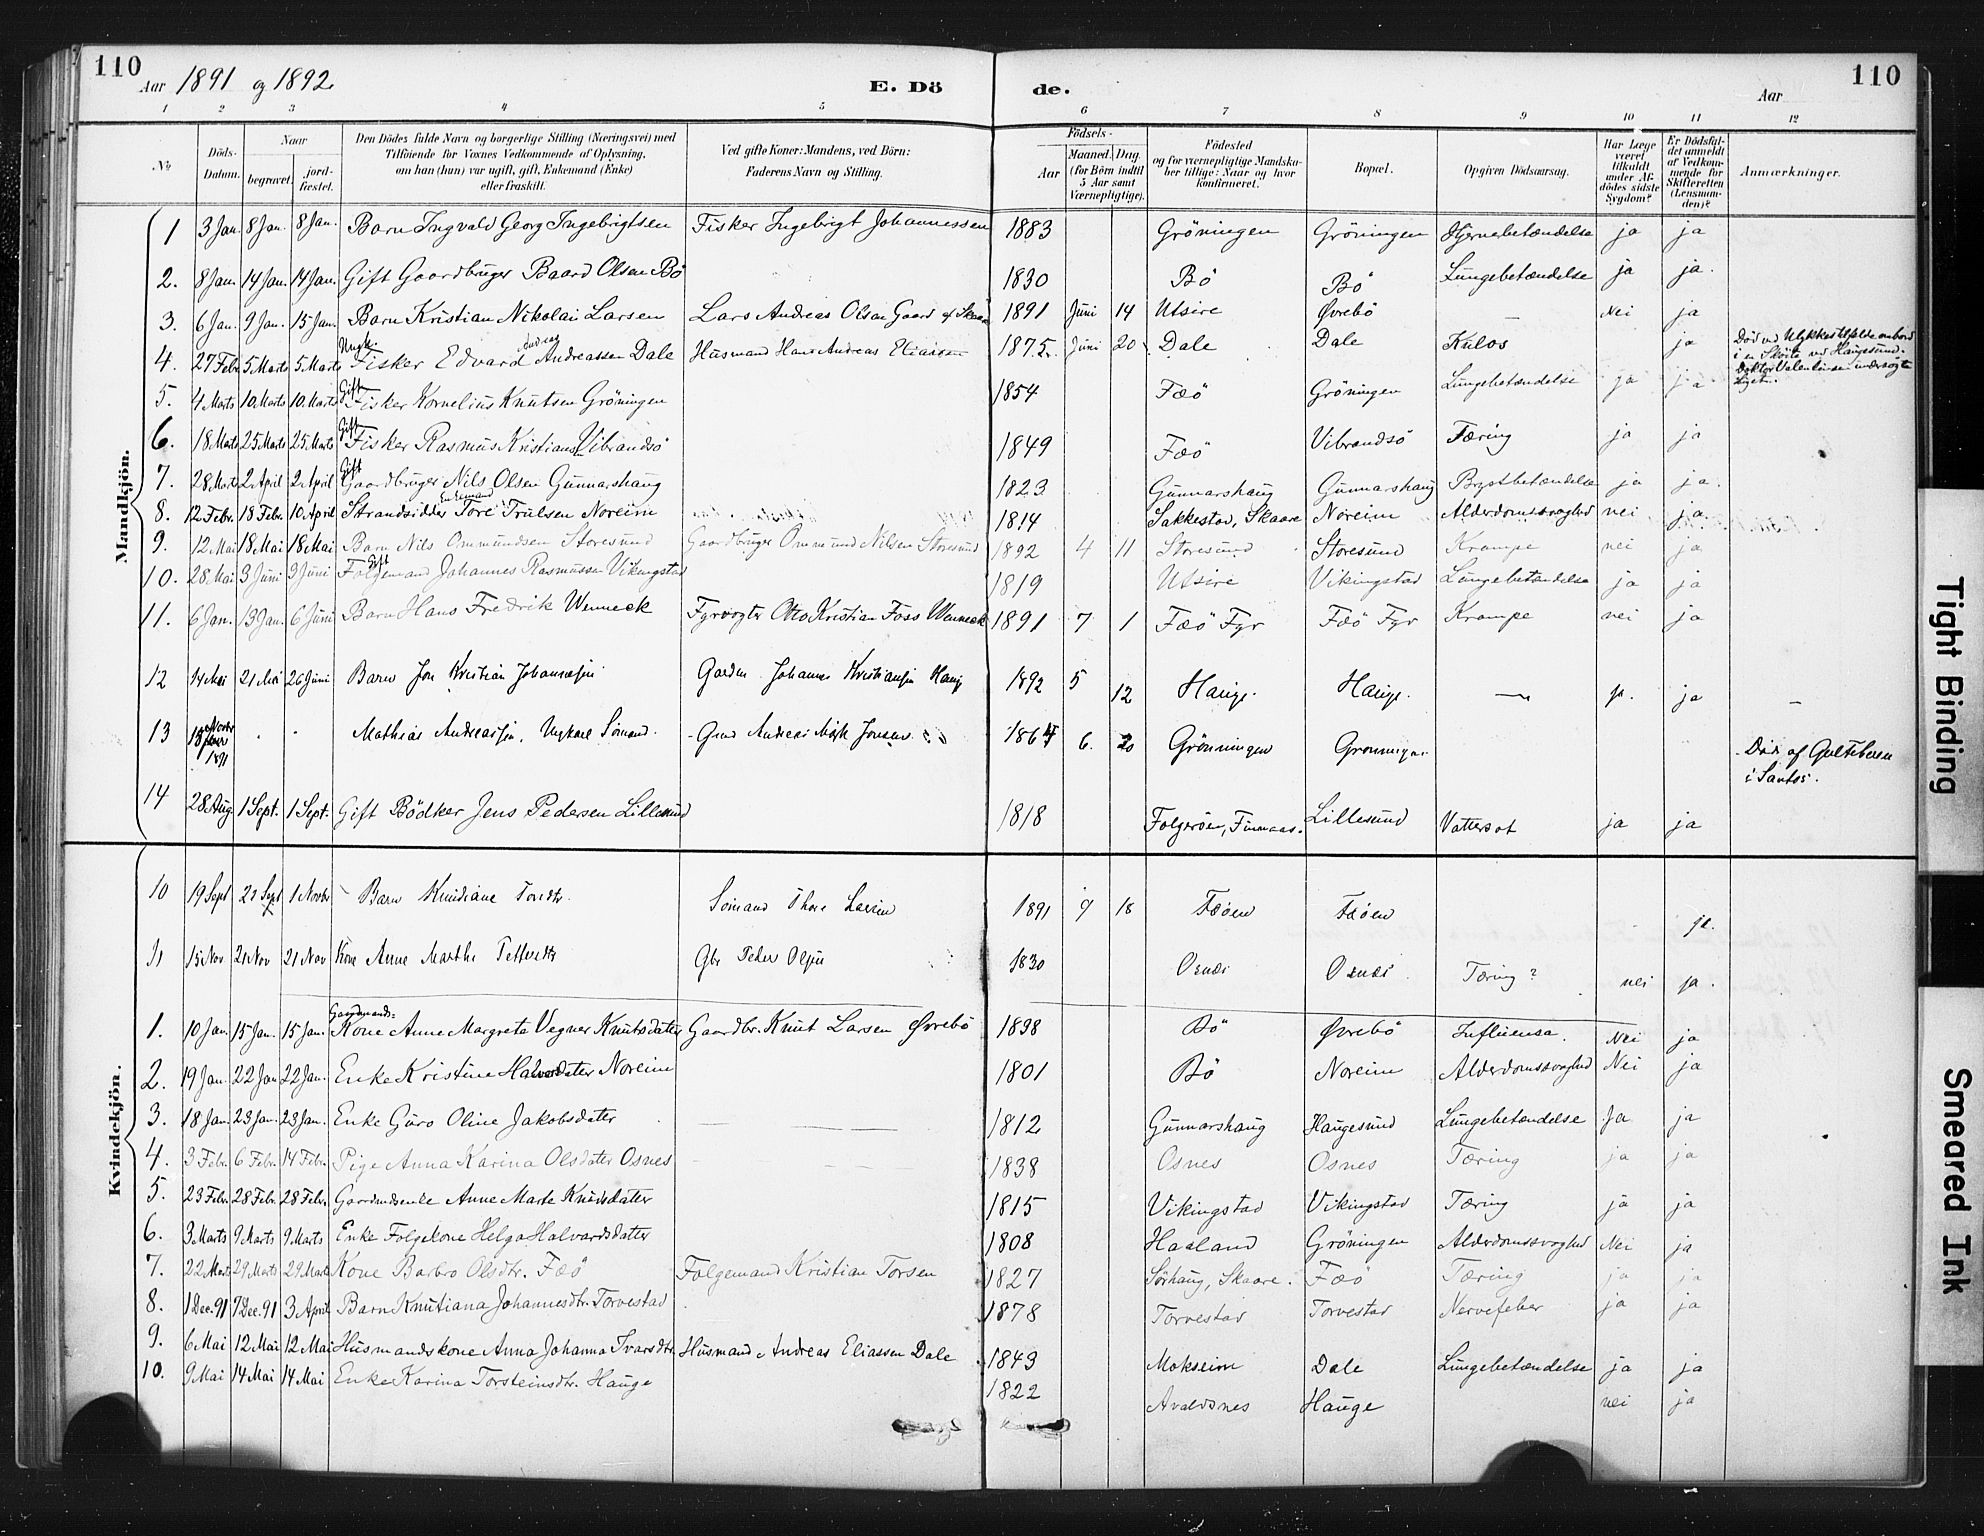 110 Aar 1891 og 1892. E. Dö de. Aar 110
1 2 3 4 5 6 7 8 9 10 11 12
No.
Döds-Datum.
Naar
begravet.
jord-fæstet.
Den Dödes fulde Navn og borgerlige Stilling (Næringsvei) med
Tilföiende for Voxnes Vedkommende af Oplysning,
om han (hun) var ugift, gift, Enkemand (Enke)
eller fraskilt.
Ved gifte Koner: Mandens, ved Börn:
Faderens Navn og Stilling.
Födsels-
Aar
Maaned. Dag
(for Börn indtil
5 Aar samt
Værnepligtige).
Födested
og for værnepligtige Mandska-
ber tillige: Naar og hvor
konfirmeret.
Bopæl.
Opgiven Dödsaarsag.
Har Læge
været
tilkaldt
under Af-
dödes sidste
Sygdom?
Er Dödsfal-
det anmeldt
af Vedkom-
mende for
Skifteretten
(Lensman-
den)?
Anmærkninger.
Mandkjön.
1 3 Jan. 8 Jan. 8 Jan. Barn Ingvald Georg Ingebrigtsen Fisker Ingebrigt Johannessen 1883 Gröningen Gröningen Hjernebetændelse ja ja
2. 8 Jan. 14 Jan. 14 Jan. Gift Gaardbruger Baard Olsen Bö 1830 Bö Bö Lungebetændelse ja ja.
3. 6 Jan. 9 Jan. 15 Jan. Barn Kristian Nikolai Larsen Lars Andreas Olsen Gaard af Skaare 1891 Juni 14 Utsire Øvrebö — Nei ja
4. 27 Febr. 5 Marts 5 Marts Ungk. Fisker Edvard Andreas Andreassen Dale Husmand Hans Andreas Eliassen 1875. Juni 20 Dale Dale Kulos ja Död ved Ulykkestilfælde ombord
i en Sköite ved Haugesund.
Doktor Valentinsen undersøgte
Liget.
5. 4 Marts 10 Marts 10 Marts Gift Fisker Kornelius Knutsen Gröningen 1854 Fæö Gröningen Lungebetændelse ja ja
6. 18 Marts 25 Marts 25 Marts Gift Fisker Rasmus Kristians. Vibrandsö 1849 Fæö Vibrandsö Tæring ja ja
7. 28 Marts 2 April 2 April Gift Gaardbruger Nils Olsen Gunnarshaug 1823 Gunnarshaug Gunnarshaug Brystbetændelse ja ja.
8. 12 Febr. 18 Febr. 10 April Strandsidder Enkemand Tore Trulsen Noreim 1814 Sakkestad, Skaare Noreim Alderdomssvaghed nei ja
9. 12 Mai 18 Mai 18 Mai Barn Nils Ommundsen Storesund Gaardbruger Ommund Nilsen Storesund 1892 4 11 Storesund Storesund Krampe nei ja
10. 28 Mai 3 Juni 3 Juni Gift Folgemand Johannes Rasmussen Vikingstad 1819 Utsire Vikingstad Lungebetændelse ja ja
11. 6 Jan. 13 Jan. 6 Juni Barn Hans Fredrik Wenneck Fyrvogter Otto Kristian Foss Wenneck 1891 7 1 Fæö Fyr Fæö Fyr Krampe nei ja
12 14 Mai 21 Mai 26 Juni Barn Jon Kristian Johannesen Gaardm. Johannes Kristiansen Hauge 1892 5 12 Hauge. Hauge. — ja. ja —
13 18 Novbr 1891 " " Mathias Andreassen, Ungkarl Sömand. Gmd Andreas Mölk Jonsen 1864 6. 20 Grönningen Gronningen Död af Gulfeberen
i Santos.
14 28 Aug. 1 Sept. 1 Sept. Gift Bödker Jens Pedersen Lillesund 1818 Folgeröen, Finnaas. Lillesund Vattersot ja ja
Kvindekjön.
10 19 Sept 22 Sept 1 Novbr Barn Knudiane Toresdtr. Sömand Thore Larsen 1891 9 18 Fæöen Fæöen ja.
11 15 Nov 21 Nov 21 Nov Kone Anne Marthe Pettersdtr Gbr Peder Olsen 1830 Osnes Osnes Tæring? nei ja.
1. 10 Jan. 15 Jan. 15 Jan. Gaardmands-Kone Anne Margreta Vegner Knutsdatter Gaardbr. Knut Larsen Øvrebö 1838 Bö Øvrebö Influensa. Nei ja
2. 19 Jan. 22 Jan 22 Jan. Enke Kristine Halvorsdatter Noreim 1801 Bö Noreim Alderdomssvaghed Nei ja
3. 18 Jan. 23 Jan. 23 Jan. Enke Guro Oline Jakobsdatter 1812 Gunnarshaug Haugesund Lungebetændelse Ja ja
4. 3 Febr. 6 Febr. 14 Febr. Pige Anna Karina Olsdatter Osnes 1838 Osnes Osnes Tæring ja ja
5. 23 Febr. 28 Febr. 28 Febr. Gaardmdsenke Anne Marte Knudsdatter 1815 Vikingstad Vikingstad Tæring ja ja
6. 3 Marts 9 Marts 9 Marts Enke Folgekone Helga Halvardsdatter 1808 Haaland Gröningen Alderdomssvaghed Nei ja
7. 22 Marts 29 Marts 29 Marts Kone Barbro Olsdtr. Fæö Folgemand Kristian Torsen 1827 Sörhaug, Skaare. Fæö Tæring ja ja
8. 1 Dec. 91 7 Dec. 91 3 April Barn Knutiana Johannesdtr. Torvestad 1878 Torvestad Torvestad Nervefeber ja ja
9. 6 Mai 12 Mai 12 Mai Husmandskone Anna Johanna Ivarsdtr. Husmand Andreas Eliassen Dale 1843 Mokseim Dale Lungebetændelse ja ja
10. 9 Mai 14 Mai 14 Mai Enke Karina Torsteinsdtr. Hauge 1822 Avaldsnes Hauge nei ja
Tight Binding
Smeared Ink